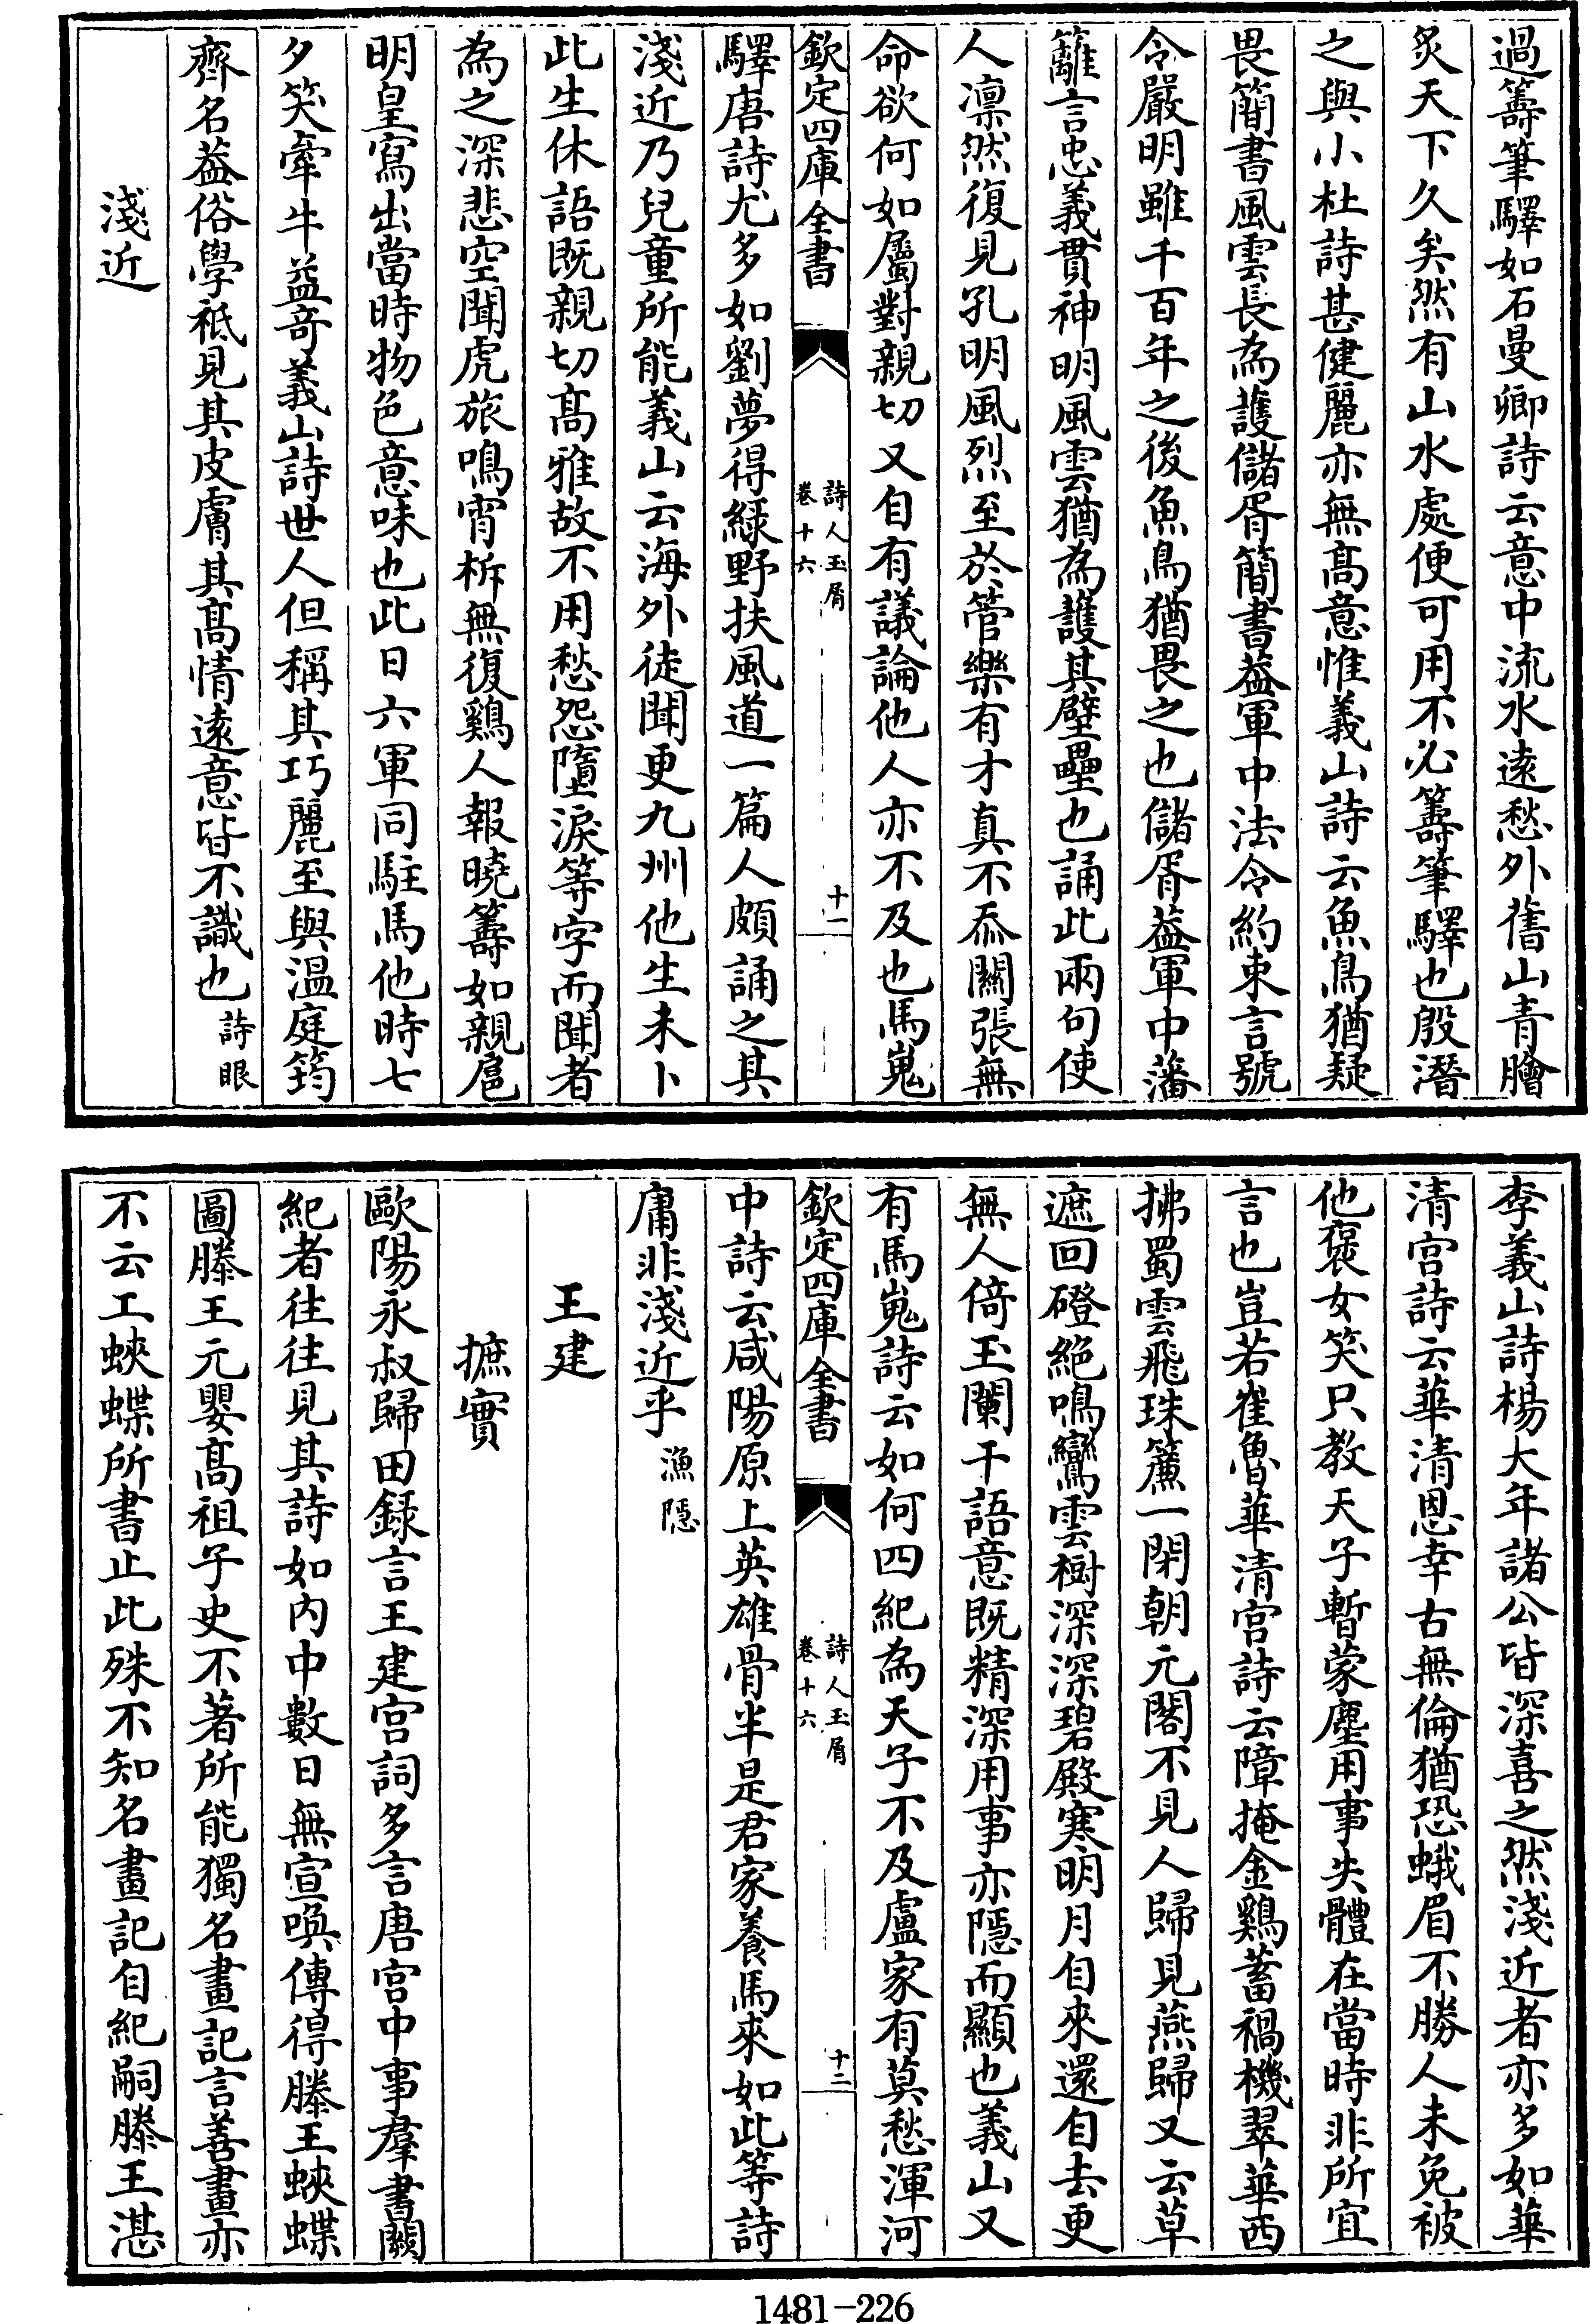 過籌筆驛如石曼卿詩云意中流水逺愁外舊山青膾
炙天下久矣然有山水處便可用不必籌筆驛也殷潛
之與小杜詩甚健麗亦無髙意惟義山詩云魚鳥猶疑
畏簡書風雲長為護儲胥簡書葢軍中法令約束言號
令嚴明雖千百年之後魚鳥猶畏之也儲胥葢軍中藩
籬言忠義貫神明風雲猶為護其壁壘也誦此兩句使
人凛然復見孔明風烈至於管樂有才真不忝關張無
命欲何如屬對親切又自有議論他人亦不及也馬嵬
欽定四庫全書
詩人玉屑
卷十六
十一
驛唐詩尤多如劉夢得緑野扶風道一篇人頗誦之其
淺近乃兒童所能義山云海外徒聞更九州他生未卜
此生休語既親切髙雅故不用愁怨墮淚等字而聞者
為之深悲空聞虎旅鳴宵柝無復鷄人報曉籌如親扈
明皇寫出當時物色意味也此日六軍同駐馬他時七
夕笑牽牛益竒義山詩世人但稱其巧麗至與温庭筠
齊名葢俗學祗見其皮膚其髙情逺意皆不識也 詩眼
淺近
李義山詩楊大年諸公皆深喜之然淺近者亦多如華
清宫詩云華清恩幸古無倫猶恐蛾眉不勝人未免被
他褒女笑只教天子暫蒙塵用事失體在當時非所宜
言也豈若崔魯華清宫詩云障掩金鷄蓄禍機翠華西
拂蜀雲飛珠簾一閉朝元閣不見人歸見燕歸又云草
遮回磴絶鳴鸞雲樹深深碧殿寒明月自來還自去更
無人倚玉闌干語意既精深用事亦隠而顯也義山又
有馬嵬詩云如何四紀為天子不及盧家有莫愁渾河
欽定四庫全書
詩人玉屑
卷十六
十二
中詩云咸陽原上英雄骨半是君家養馬來如此等詩
庸非淺近乎 漁隠
王建
摭實
歐陽永叔歸田録言王建宫詞多言唐宫中事羣書闕
紀者往往見其詩如内中數日無宣喚傳得滕王蛺蝶
圖滕王元嬰髙祖子史不著所能獨名畫記言善畫亦
不云工蛺蝶所書止此殊不知名畫記自紀嗣滕王湛
1481-226